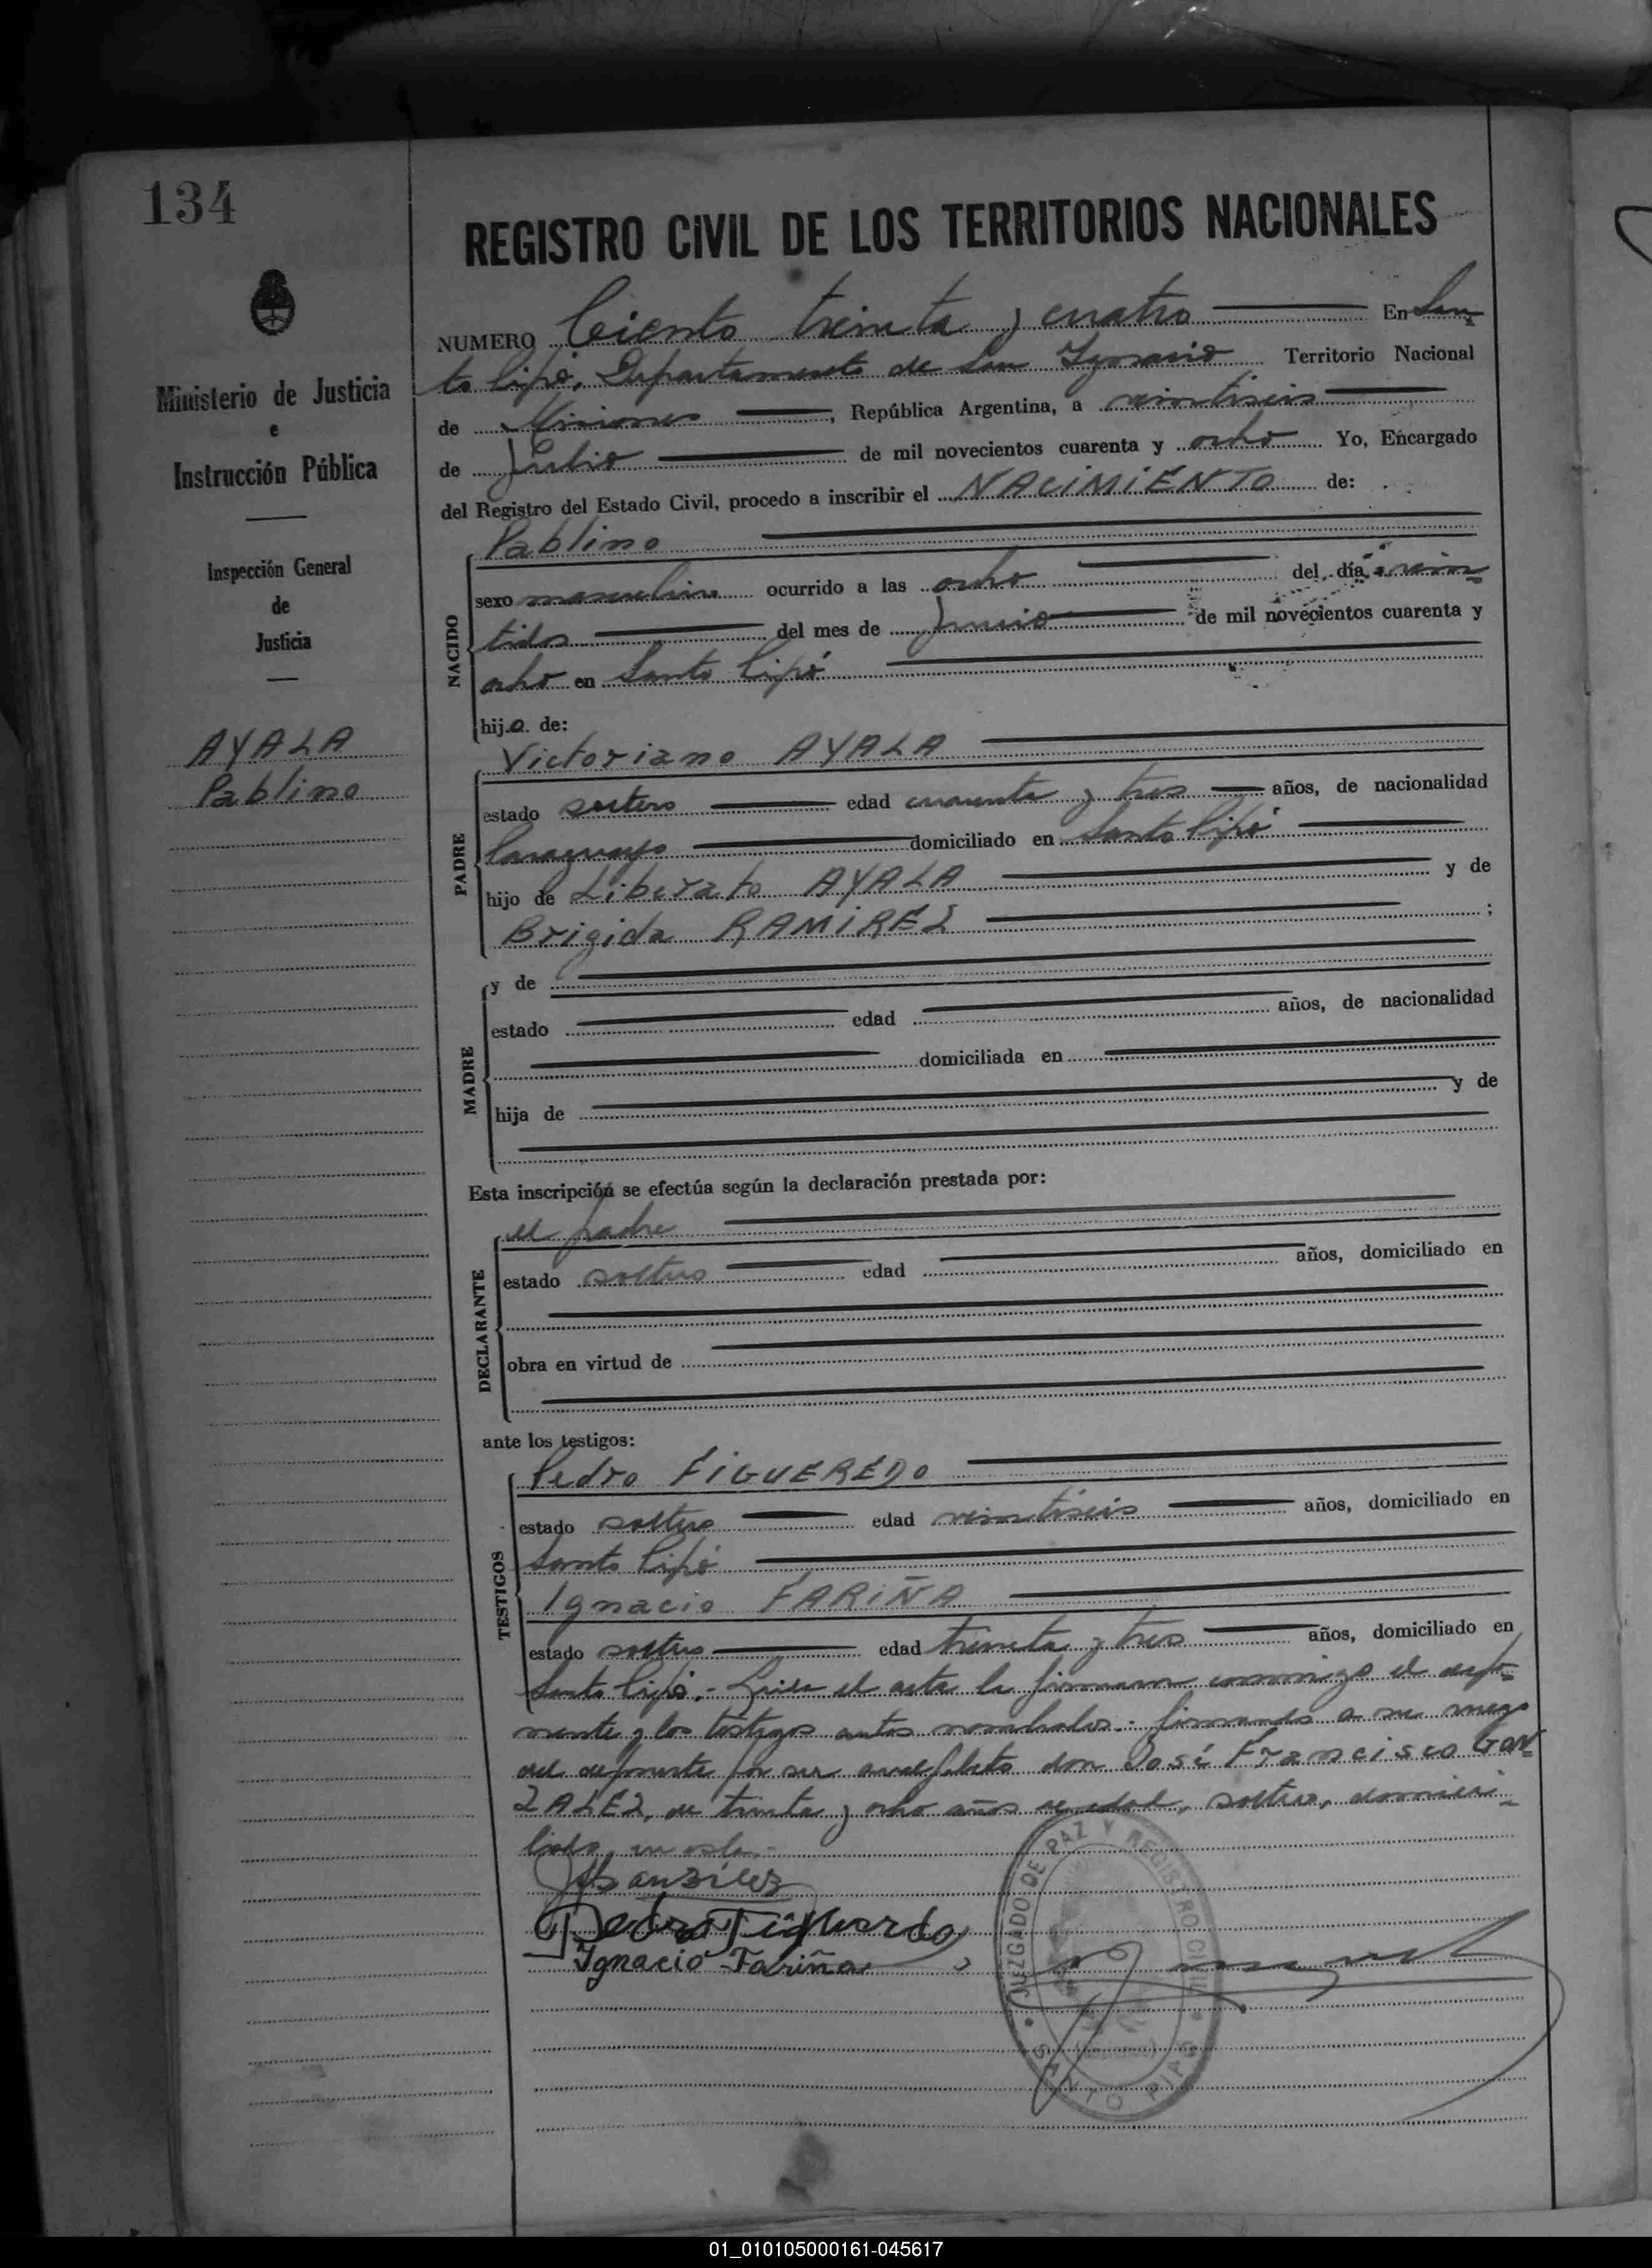 134
REGISTRO CIVIL DE LOS TERRITORIOS NACIONALES
Ministerio de Justicia
e
Instrucción Pública
Inspección General
de
Justicia
AYALA
Pablino
NUMERO Ciento treinta y cuatro En San
to Pipó, Departamento de San Ignacio Territorio Nacional
de Misiones, República Argentina, a veintiseis
de Julio de mil novecientos cuarenta y ocho Yo, Encargado
del Registro del Estado Civil, procedo a inscribir el NACIMIENTO de:
NACIDO
Pablino
sexo masculino ocurrido a las ocho del día vein-
tidos del mes de Junio de mil novecientos cuarenta y
ocho en Santo Pipó
hijo de:
PADRE
Victoriano AYALA
estado soltero edad cuarenta y tres años, de nacionalidad
Paraguayo domiciliado en Santo Pipó
hijo de Liberato AYALA y de
Brigida RAMIREZ ;
MADRE
y de
estado edad años, de nacionalidad
domiciliada en
hija de y de
Esta inscripción se efectúa según la declaración prestada por:
DECLARANTE
el padre
estado soltero edad años, domiciliado en
obra en virtud de
ante los testigos:
TESTIGOS
Pedro FIGUEREDO
estado soltero edad veintiseis años, domiciliado en
Santo Pipó
Ignacio FARIÑA
estado soltero edad treinta y tres años, domiciliado en
Santo Pipó.- Leida el acta la firmaron conmigo el depo-
nente y los testigos antes nombrados.- firmando a su ruego
del deponente por ser analfabeto don José Francisco GON-
ZALEZ, de treinta y ocho años de edad, soltero, domici-
liado en esta.-
Pedro Figueredo
Ignacio Fariña
JUZGADO DE PAZ Y REGISTRO CIVIL
SANTO PIPO
01_010105000161-045617